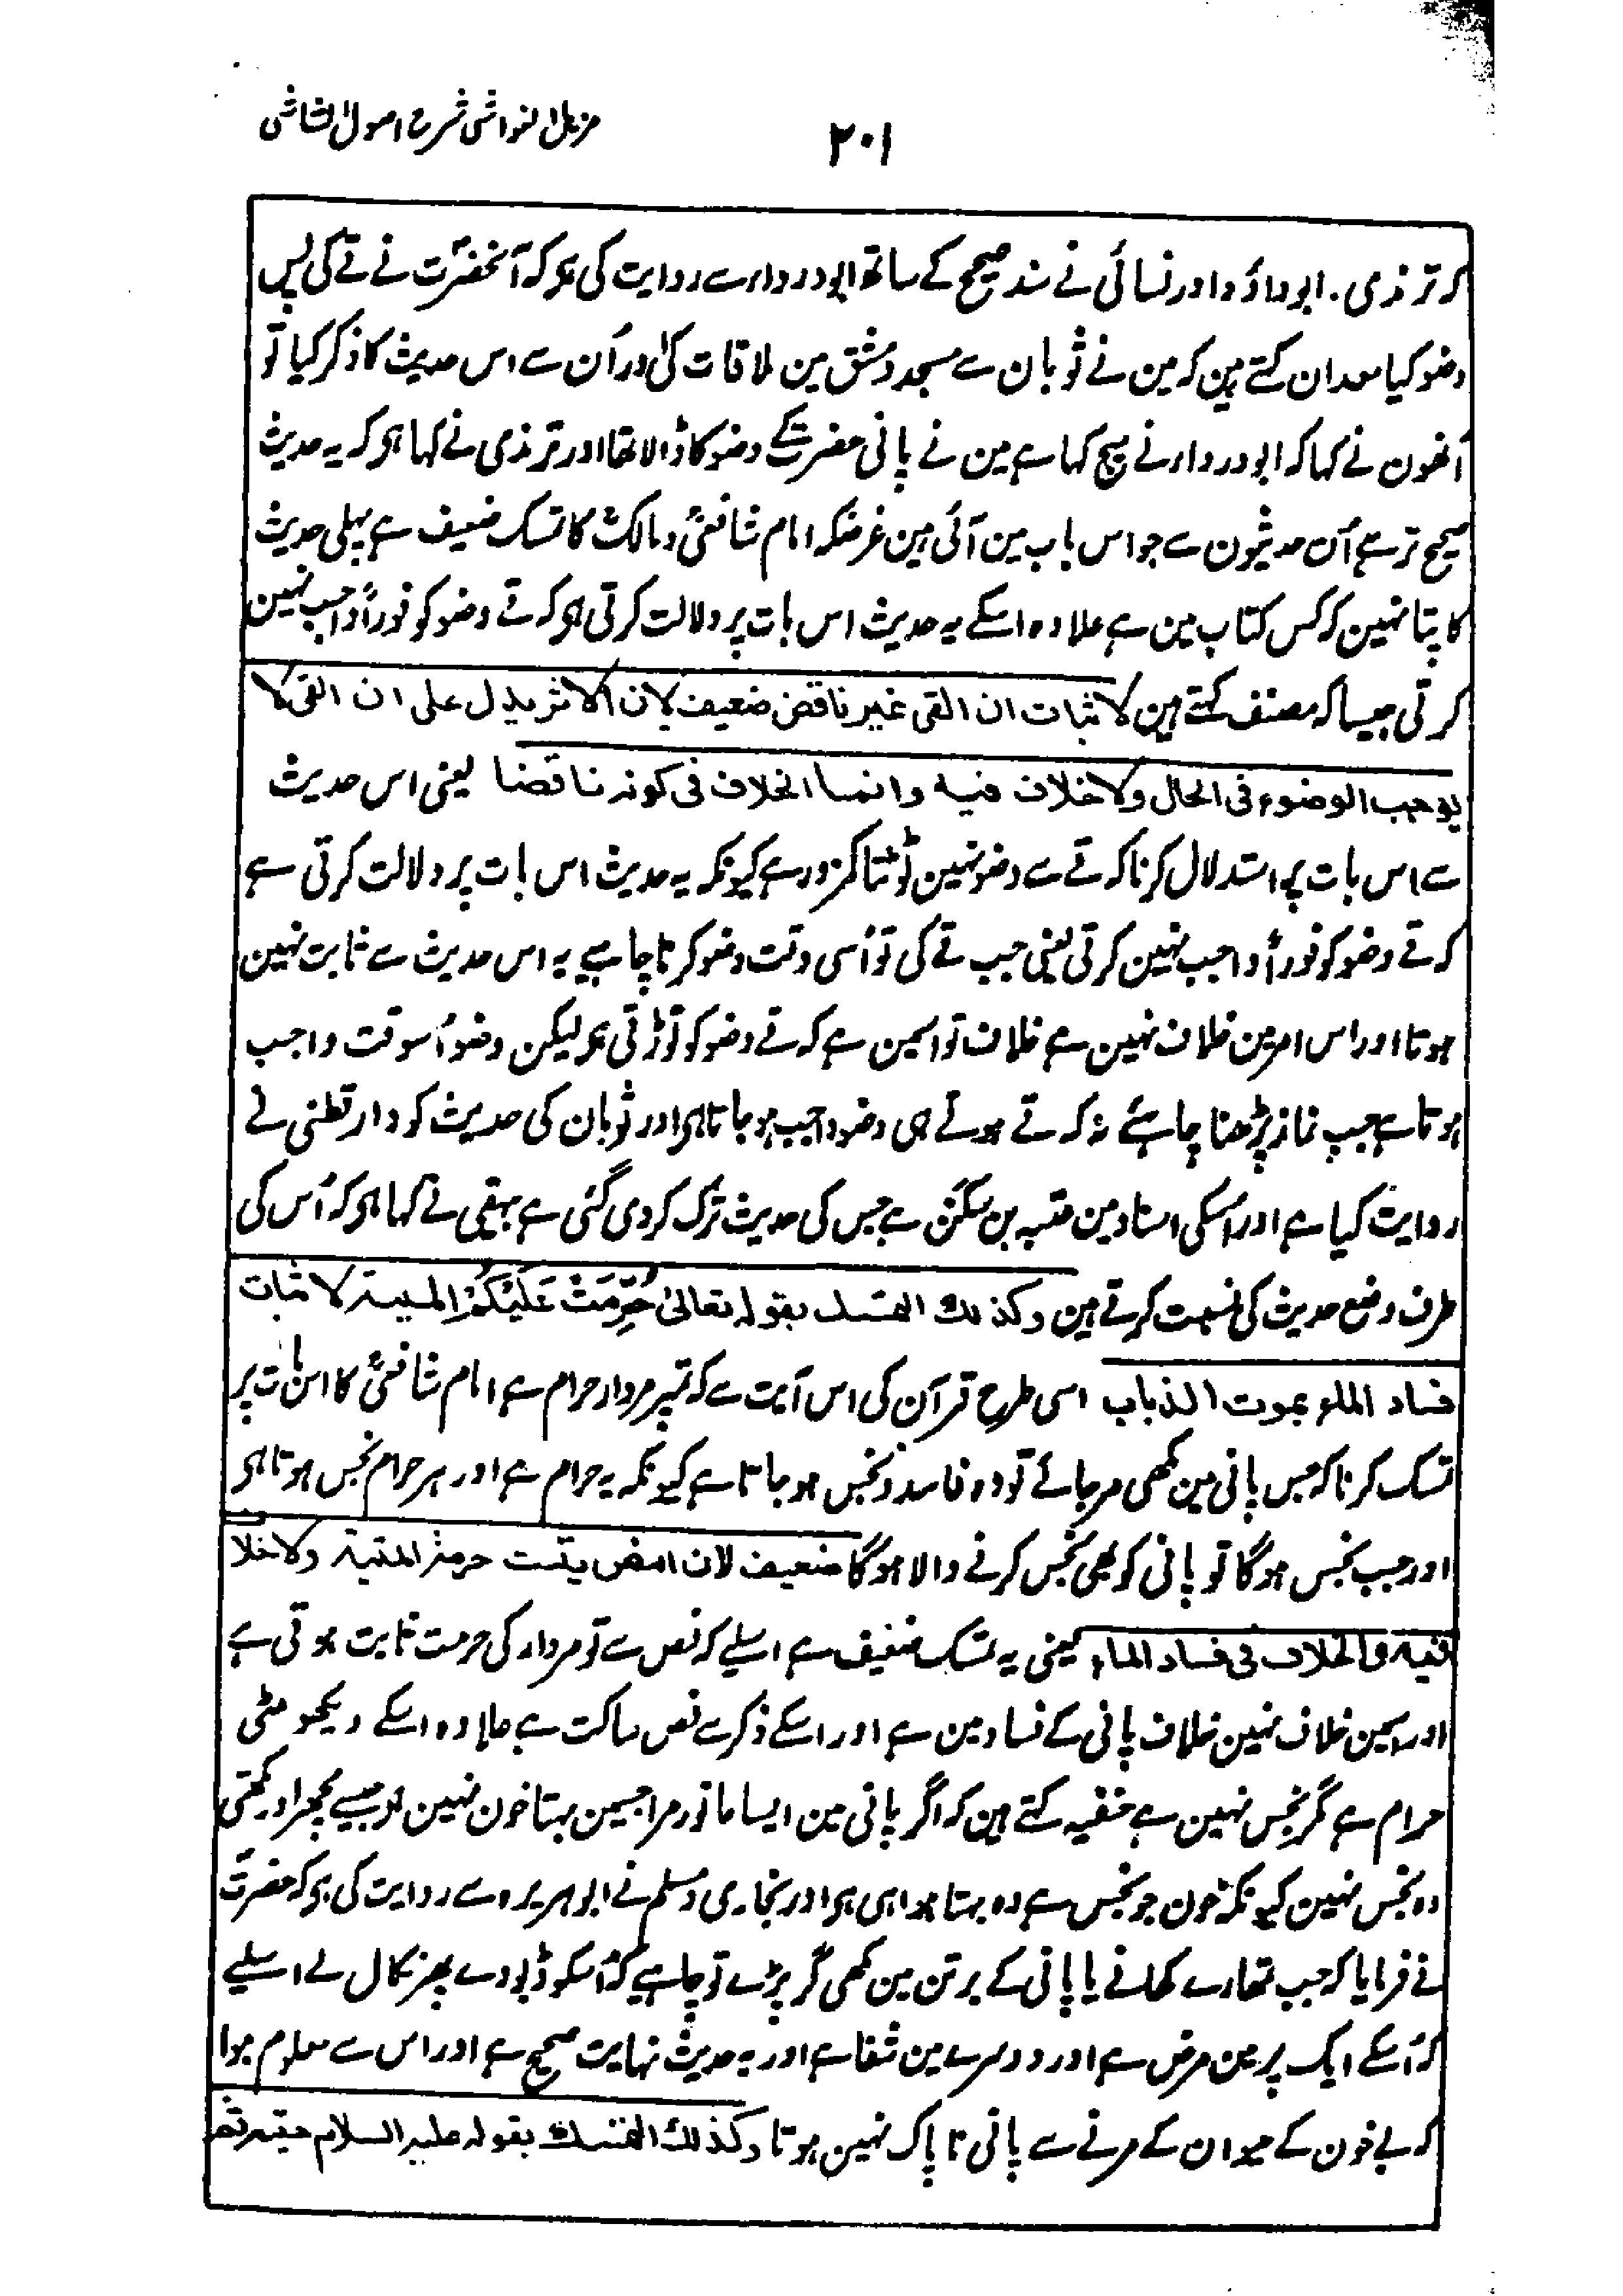 مزیل الغواشی شرح اصول الشاشی
۲۰۱
کہ ترمذی۔ ابوداؤد اور نسائی نے سند صحیح کے ساتھ ابودرداء سے روایت کی ہو کہ آنحضرتؐ نے قے کی پس
وضو کیا معدان کہتے ہین کہ مین نے ثوبان سے مسجد دمشق مین ملاقات کی اور اُن سے اس حدیث کا ذکر کیا تو
اُنھون نے کہا کہ ابودرداء نے سچ کہا ہے مین نے پانی حضرتؐ کے وضو کا ڈالا تھا اور ترمذی نے کہا ہو کہ یہ حدیث
صحیح تر ہے اُن حدیثون سے جو اس باب مین آئی ہین غرضکہ امام شافعیؒ و مالکؒ کا تمسک ضعیف ہے پہلی حدیث
کا پتا نہین کہ کس کتاب مین ہے علاوہ اسکے یہ حدیث اس بات پر دلالت کرتی ہو کہ قے وضو کو فوراً واجب نہین
کرتی جیسا کہ مصنف کہتے ہین لاثبات ان القی غیر ناقض ضعیف لان الاثر یدل علی ان القی لا
یوجب الوضوء فی الحال ولا خلاف فیہ وانما الخلاف فی کونہ ناقضا یعنی اس حدیث
سے اس بات پر استدلال کرنا کہ قے سے وضو نہین ٹوٹتا کمزور ہے کیونکہ یہ حدیث اس بات پر دلالت کرتی ہے
کہ قے وضو کو فوراً واجب نہین کرتی یعنی جب قے کی تو اُسی وقت وضو کرنا چاہیے یہ اس حدیث سے ثابت نہین
ہوتا اور اس امر مین خلاف نہین ہے خلاف تو اسمین ہے کہ قے وضو کو توڑتی ہو لیکن وضو اُسوقت واجب
ہوتا ہے جب نماز پڑھنا چاہے نہ کہ قے ہوتے ہی وضو واجب ہو جاتا ہو اور ثوبان کی حدیث کو دارقطنی نے
روایت کیا ہے اور اُسکی اسناد مین عتبہ بن سکن ہے جس کی حدیث ترک کردی گئی ہے بیہقی نے کہا ہو کہ اُس کی
طرف وضع حدیث کی نسبت کرتے ہین وکذلک التمسک بقولہ تعالی حُرِّمَتْ عَلَيْكُمُ المیتۃ لاثبات
فساد الماء بموت الذباب اسی طرح قرآن کی اس آیت سے کہ تمپر مردار حرام ہے امام شافعیؒ کا اس بات پر
تمسک کرنا کہ جس پانی مین مکھی مرجائے تو وہ فاسد و نجس ہو جاتا ہے کیونکہ یہ حرام ہے اور ہر حرام نجس ہوتا ہو
اور جب نجس ہوگا تو پانی کو بھی نجس کرنے والا ہوگا ضعیف لان النص یثبت حرمۃ المیتۃ ولا خلا
فیہ والخلاف فی فساد الماء یعنی یہ تمسک ضعیف ہے اسلیے کہ نص سے تو مردار کی حرمت ثابت ہوتی ہے
اور اسمین خلاف نہین خلاف پانی کے فساد مین ہے اور اسکے ذکر سے نص ساکت ہے علاوہ اسکے دیکھو مٹی
حرام ہے مگر نجس نہین ہے حنفیہ کہتے ہین کہ اگر پانی مین ایسا جانور مرا جسمین بہتا خون نہین ہو جیسے مچھر اور مکھی
وہ نجس نہین کیونکہ خون جو نجس ہے وہ بہتا ہوا ہی ہو اور بخاری و مسلم نے ابوہریرہ سے روایت کی ہو کہ حضرتؐ
نے فرمایا کہ جب تمھارے کھانے یا پانی کے برتن مین مکھی گر پڑے تو چاہیے کہ اُسکو ڈبو دے پھر نکال لے اسلیے
کہ اُسکے ایک پر مین مرض ہے اور دوسرے مین شفا ہے اور یہ حدیث نہایت صحیح ہے اور اس سے معلوم ہوا
کہ بے خون کے حیوان کے مرنے سے پانی ناپاک نہین ہوتا وکذلک التمسک بقولہ علیہ السلام حتیہ ثم